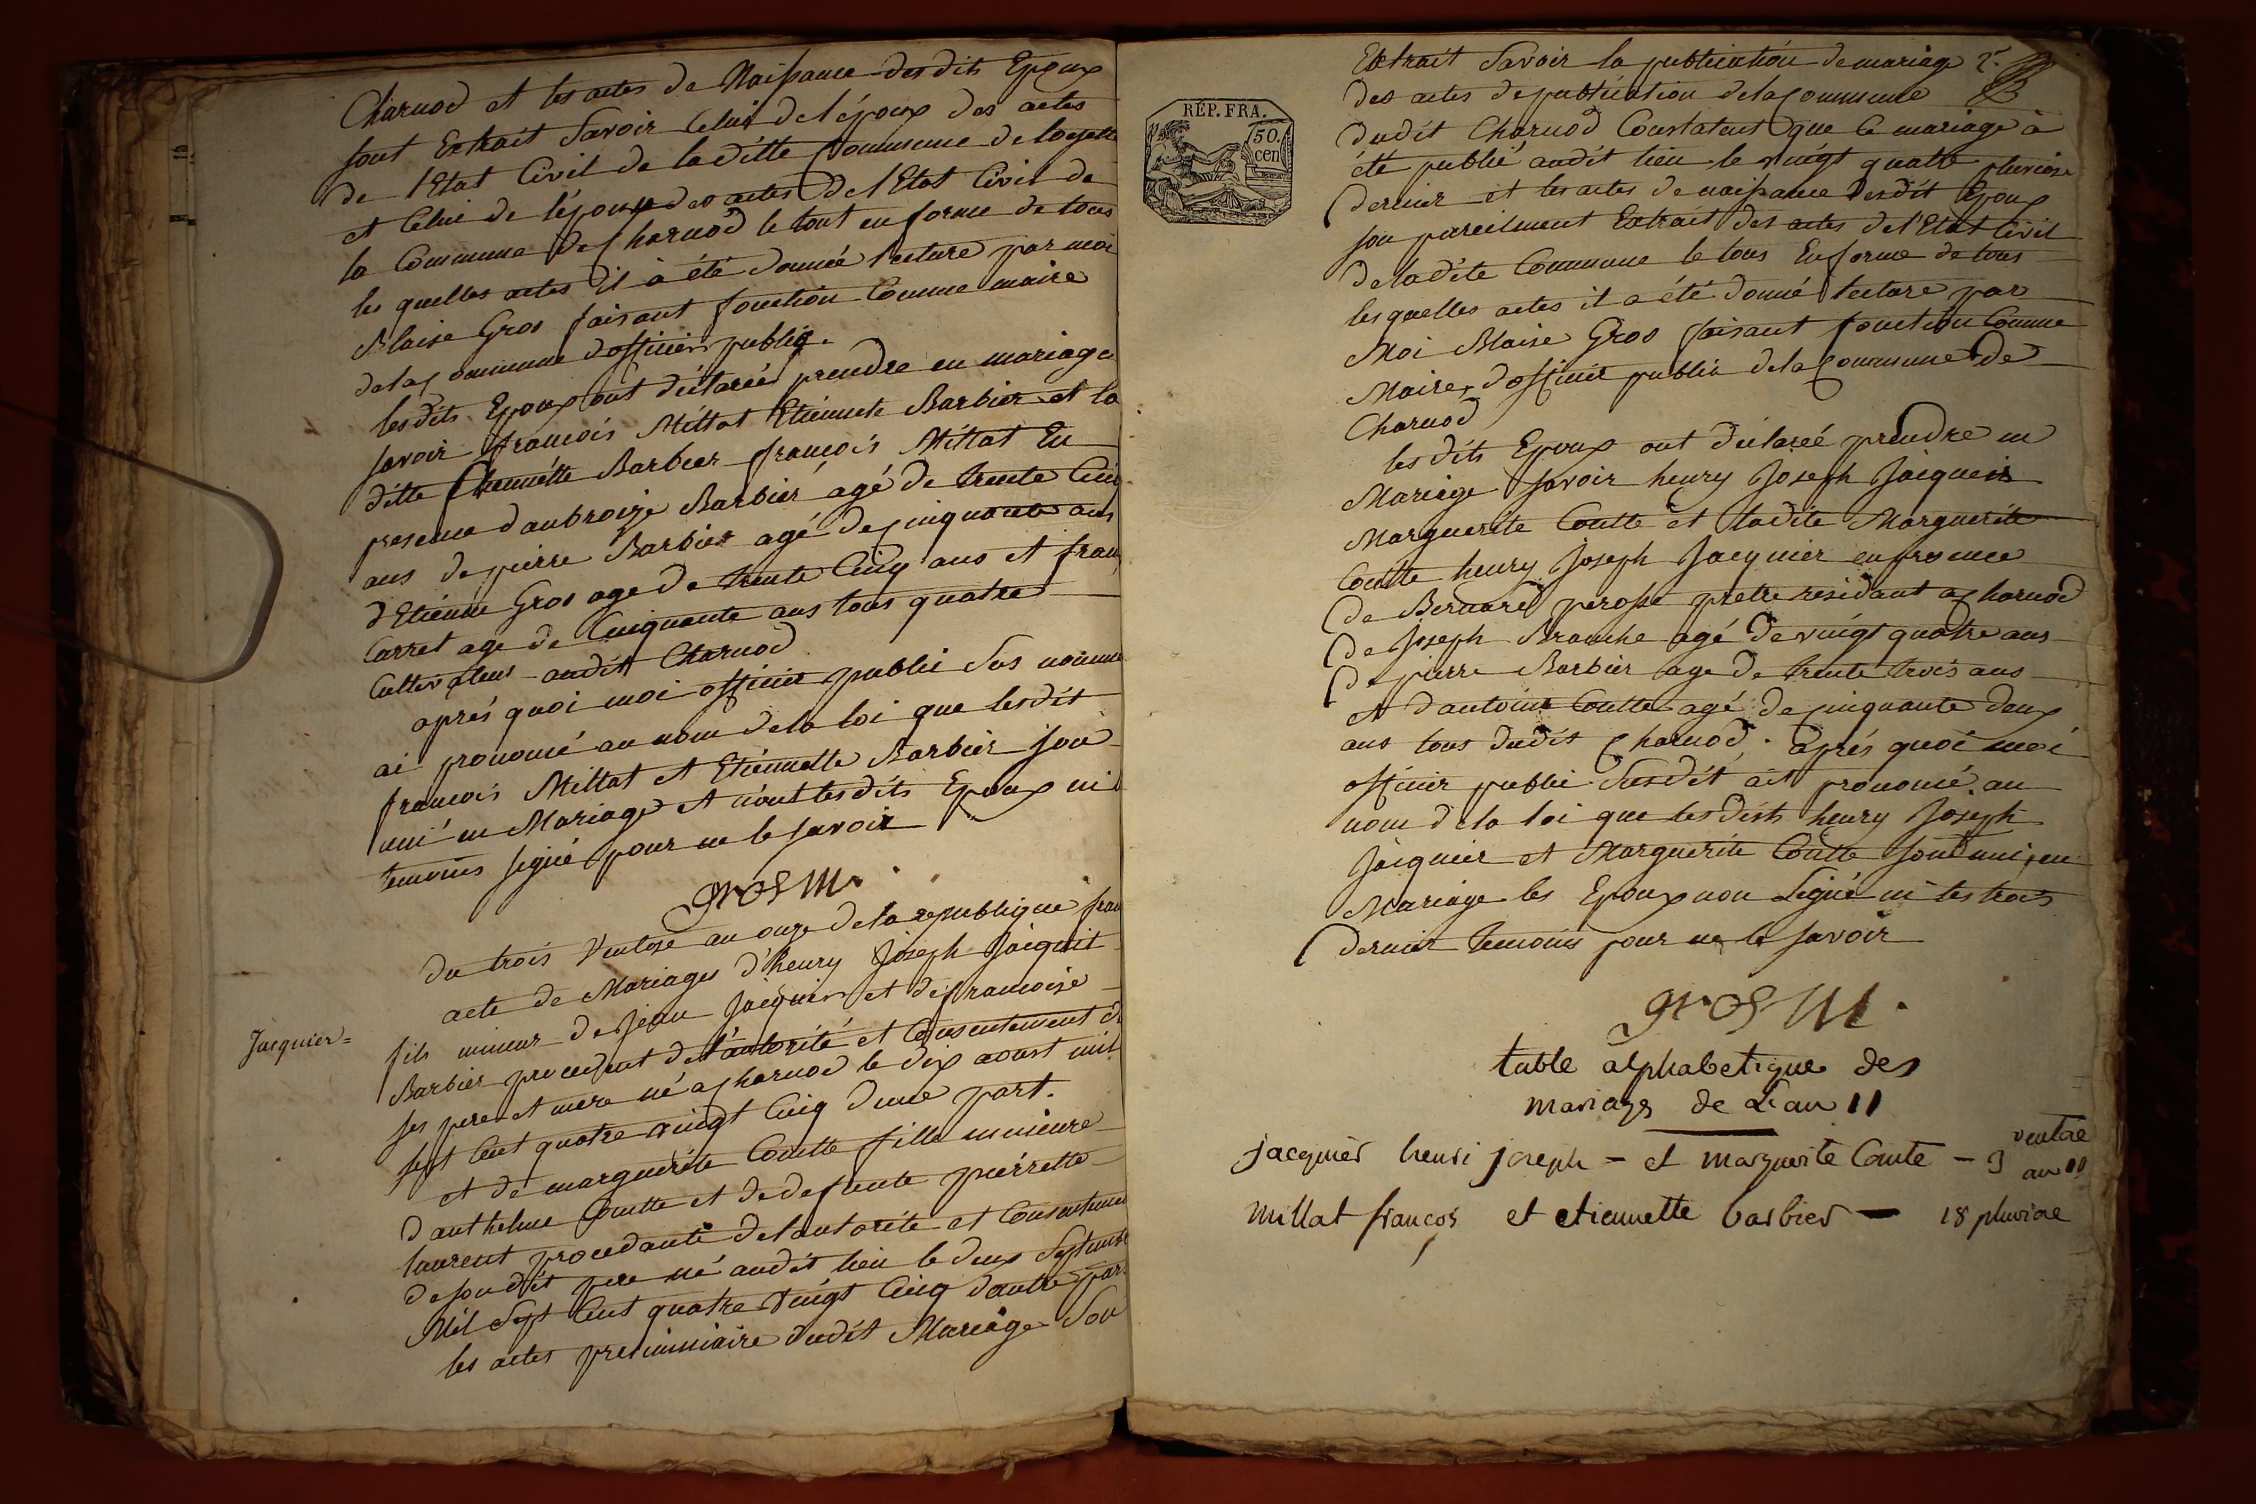 Charnod et les actes de Naissance desdits Epoux
sont Extrait Savoir Celui de l'époux des actes
de l'Etat Civil de la ditte Commune de loyette
et Celui de l'épouse des actes de l'Etat Civil de
la Commune de Charnod le tout en forme de tous
les quelles actes il à été donnée lecture par moi
Blaise Gros faisant fonction Comme maire
de la Commune d'officier public.
lesdits Epoux ont déclarée prendre en mariage
savoir françois Millat Etiennete Barbier et la
ditte Etiennette Barbier françois Millat En
presence d'aubroize Barbier agé de trente Cinq
ans de pierre Barbier agé de cinquante ans
d'Etienne Gros age de trente Cinq ans et fran
Carret age de Cinquante ans tous quatre
Cultivateur audit Charnod
aprés quoi moi officier public Sus nommé
ai prononcé au nom de la loi que lesdit
françois Millat et Etiennette Barbier son
uni en Mariage et n'ont lesdits Epoux ni
temoins signé pour ne le savoir
gros M.
du trois Ventose an onze de la republique fran
acte de Mariages d'henry Joseph Jacquit
Jacquier =
fils mineur de Jean Jacquier et de francoise
Barbier procedent de l'autorité et Consentement de
ses pere et mere né a Charnod le dix aoust mil
sept Cent quatre vingt Cinq d'une part.
et de marguerite Coutte fille mineure
d'anthelme Coutte et de defunte pierrette
laurent procedante de l'autorite et Consentement
de son dit pere né audit lieu le deux Septembre
Mil Sept Cent quatre vingt Cinq d'autre part
les actes preliminiaire dudit Mariage Son
RÉP. FRA.
50.
cen
Extrait Savoir la publication de mariage 2.
des actes de publication de la Commune
dudit Charnod Constatent que le mariage à
été publié audit lieu le vingt quatre pluviose
dernier et les actes de naissance desdit Epoux
son pareilment Extrait des actes de l'Etat Civil
de la dite Commune le tous En forme de tous
les quelles actes il a été donné lecture par
Moi Blaise Gros faisant fonction Comme
Maire, d'officier public de la Commune de
Charnod
les dits Epoux ont déclareé prendre en
Mariage savoir henry Joseph Jacquier
Marguerite Coutte et ladite Marguerite
Coutte henry Joseph Jacquier en presence
de Bernard perosse pretre residant a Charnod
de Joseph Branche agé de vingt quatre ans
de pierre Barbier age de trente trois ans
et d'antoine Coutte agé de cinquante deux
ans tous dudit Charnod. aprés quoi moi
officier public Susdit ait prononcé au
nom de la loi que lesdits henry Joseph
Jacquier et Marguerite Coutte sont uni en
Mariage les Epoux non Signé ni les trois
dernier temoins pour ne le savoir
gros M.
table alphabetique des
mariages de L'an 11
jacquier henri joseph = et marguerite Coute - 3 ventose
an 11
millat françois et etiennette barbier - 18 pluviose